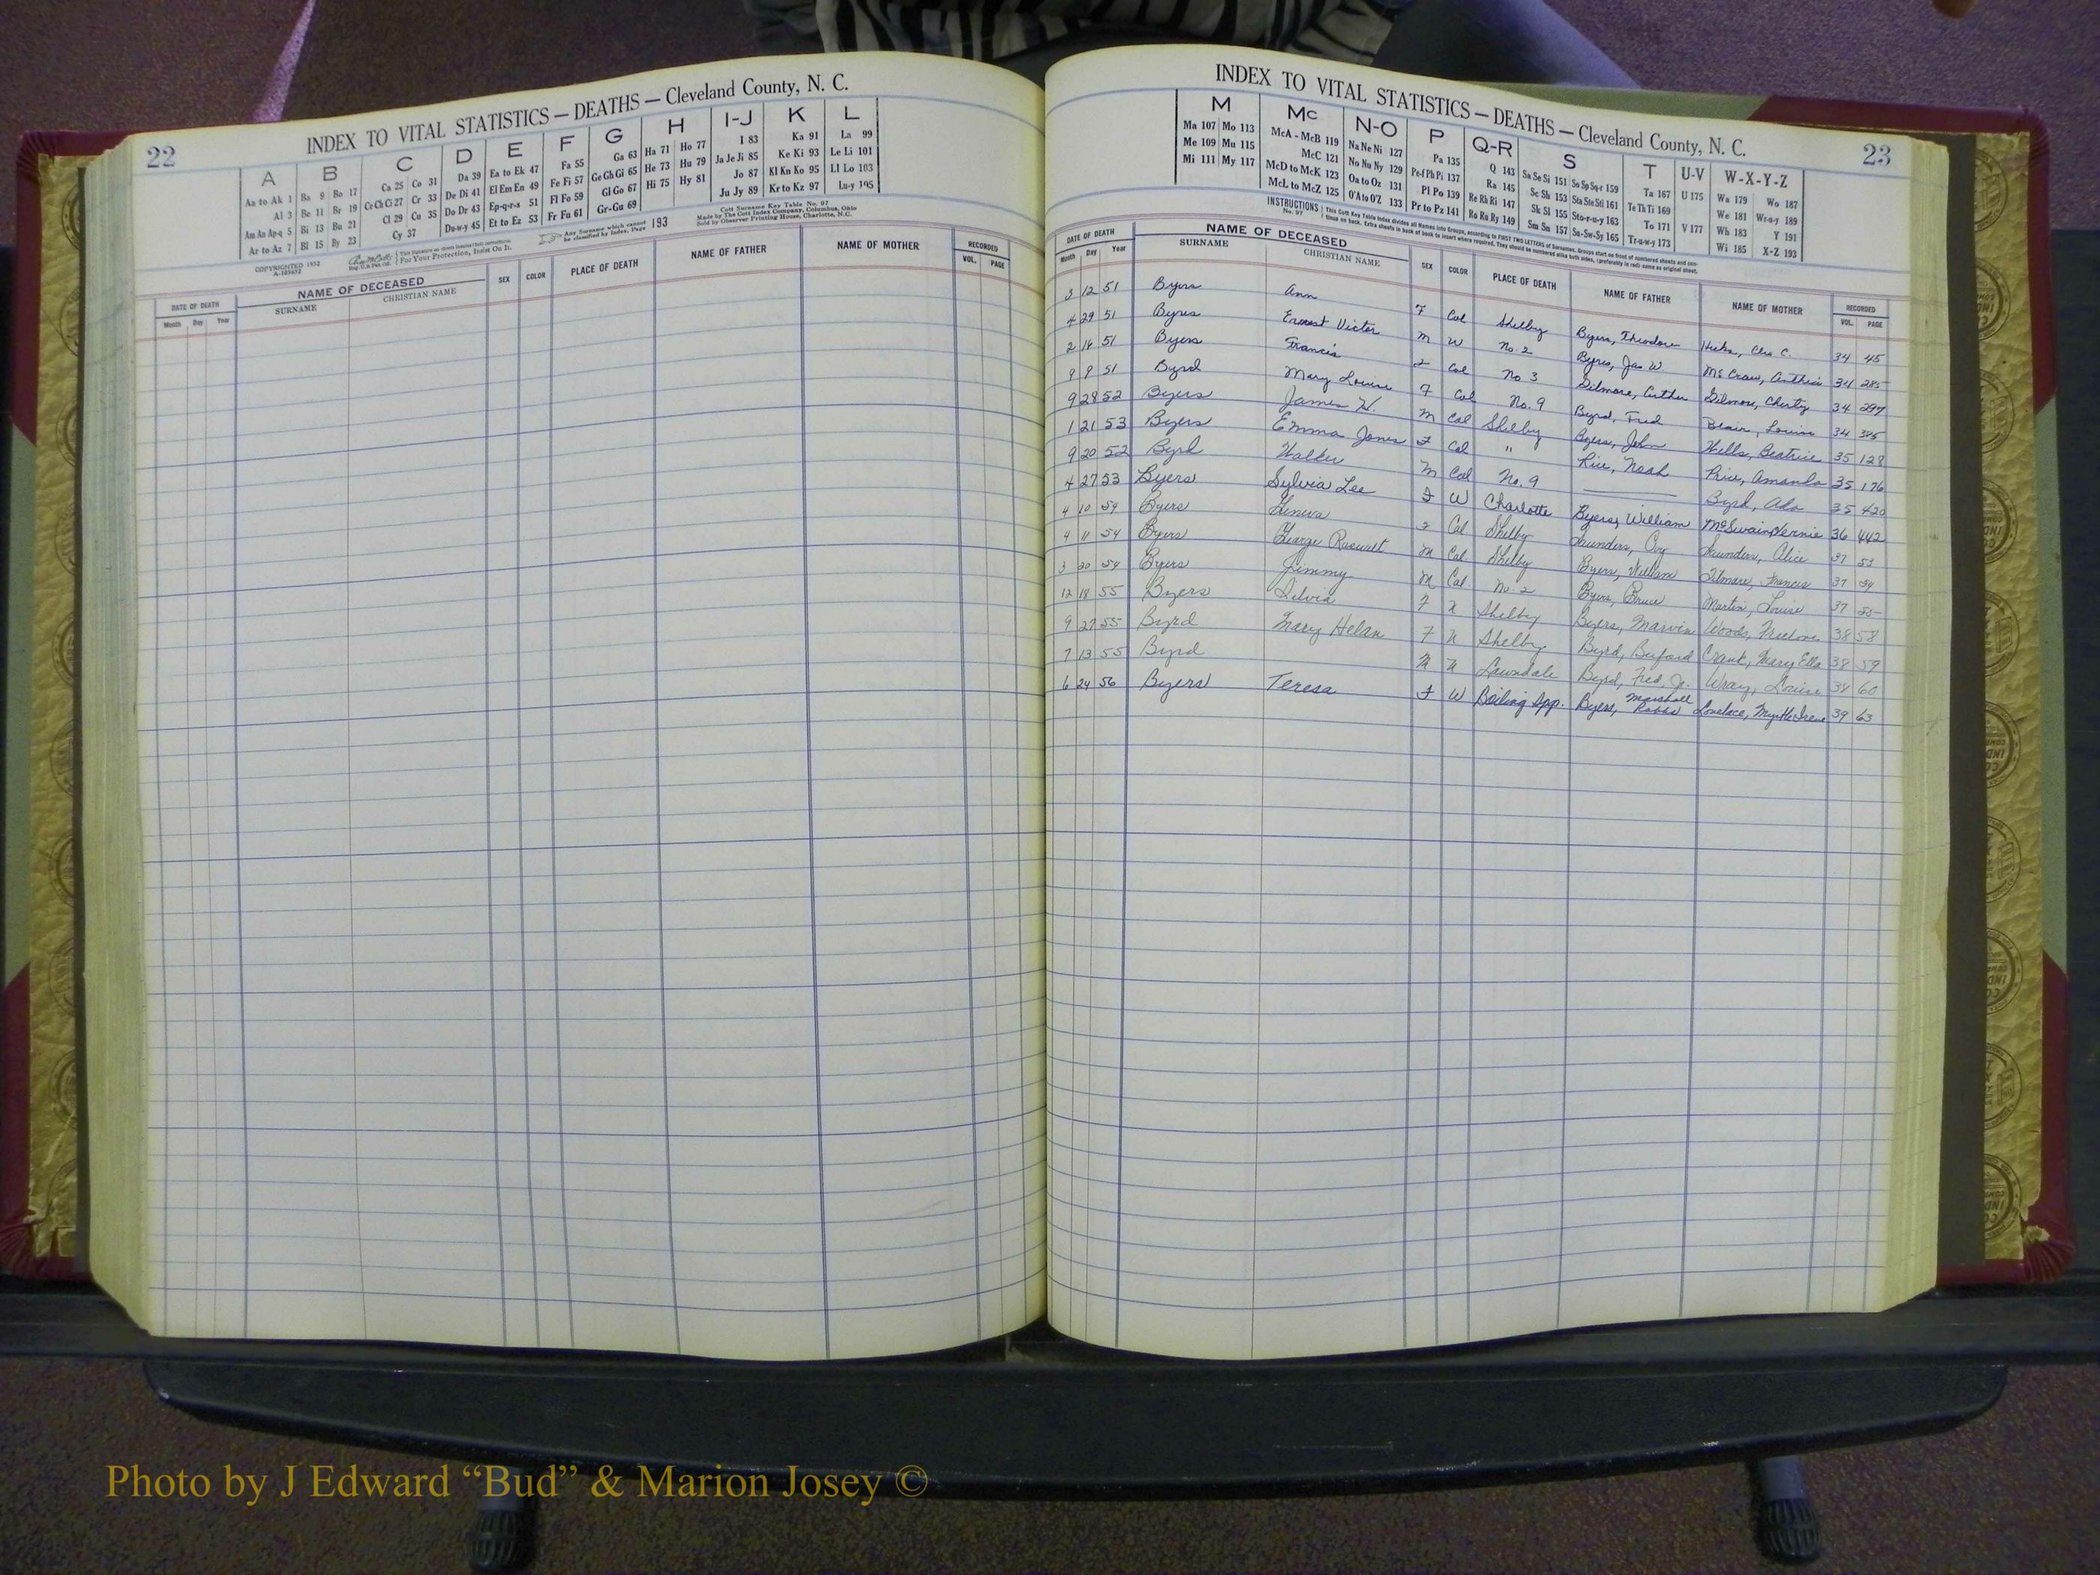 22
INDEX TO VITAL STATISTICS — DEATHS — Cleveland County, N. C.
A B C D E F G H I-J K L
Aa to Ak 1 Ba 9 Bo 17 Ca 25 Co 31 Da 39 Ea to Ek 47 Fa 55 Ga 63 Ha 71 Ho 77 I 83 Ka 91 La 99
Al 3 Be 11 Br 19 Ce Ch Ci 27 Cr 33 De Di 41 El Em En 49 Fe Fi 57 Ge Gh Gi 65 He 73 Hu 79 Ja Je Ji 85 Ke Ki 93 Le Li 101
Am An Ap-q 5 Bi 13 Bu 21 Cl 29 Cu 35 Do Dr 43 Ep-q-r-s 51 Fl Fo 59 Gl Go 67 Hi 75 Hy 81 Jo 87 Kl Kn Ko 95 Ll Lo 103
Ar to Az 7 Bl 15 By 23 Cy 37 Du-w-y 45 Et to Ez 53 Fr Fu 61 Gr-Gu 69 Ju Jy 89 Kr to Kz 97 Lu-y 105
COPYRIGHTED 1932
A-103652
This Signature on sheets Insures Full correctness.
For Your Protection, Insist On It.
Any Surname which cannot
be classified by Index, Page 193
Cott Surname Key Table No. 97
Made by The Cott Index Company, Columbus, Ohio
Sold by Observer Printing House, Charlotte, N.C.
DATE OF DEATH NAME OF DECEASED SEX COLOR PLACE OF DEATH NAME OF FATHER NAME OF MOTHER RECORDED
Month Day Year SURNAME CHRISTIAN NAME VOL. PAGE
INDEX TO VITAL STATISTICS — DEATHS — Cleveland County, N. C.
23
M Mc N-O P Q-R S T U-V W-X-Y-Z
Ma 107 Mo 113 McA - McB 119 Na Ne Ni 127 Pa 135 Q 143 Sa Se Si 151 So Sp Sq-r 159 Ta 167 U 175 Wa 179 Wo 187
Me 109 Mu 115 McC 121 No Nu Ny 129 Pe-f Ph Pi 137 Ra 145 Sc Sh 153 Sta Ste Sti 161 Te Th Ti 169 We 181 Wr-u-y 189
Mi 111 My 117 McD to McK 123 Oa to Oz 131 Pl Po 139 Re Rh Ri 147 Sk Sl 155 Sto-r-u-y 163 To 171 V 177 Wh 183 Y 191
McL to McZ 125 O'A to O'Z 133 Pr to Pz 141 Ro Ru Ry 149 Sm Sn 157 Su-Sw-Sy 165 Tr-u-w-y 173 Wi 185 X-Z 193
INSTRUCTIONS
No. 97
This Cott Key Table Index divides all Names into Groups, according to FIRST TWO LETTERS of Surnames. Groups start on front of numbered sheets and continue on back. Extra sheets in back of book to insert where required. They should be numbered alike both sides, (preferably in red) same as original sheet.
DATE OF DEATH NAME OF DECEASED SEX COLOR PLACE OF DEATH NAME OF FATHER NAME OF MOTHER RECORDED
Month Day Year SURNAME CHRISTIAN NAME VOL. PAGE
3 12 51 Byers Ann F Col Shelby Byers, Theodore 34 45
4 29 51 Byers Earnest Victor M W No. 2 Byers, Jas W. McCraw, 34 285
2 16 51 Byers Francis F Col No 3 Gilmore, 34 297
9 9 51 Byrd Mary Louise F Col No. 9 Byrd, Fred Blair, Louise 34 385
9 28 52 Byers James W. M Col Shelby Byers, John Wells, Beatrice 35 128
1 21 53 Byers Emma Jones F Col " Rice, Noah Price, Amanda 35 176
9 20 52 Byrd Walker M Col No. 9 Byrd, Ada 35 420
4 27 53 Byers Sylvia Lee F W Charlotte Byers, William McSwain, Vernie 36 442
4 10 54 Byers Geneva F Col Shelby Saunders, Saunders, Alice 37 53
4 11 54 Byers George Rosevelt M Col Shelby Byers, William Gilmore, Francis 37 54
3 30 54 Byers Jimmy M Col No. 2 Byers, Bruce Martin, Louise 37 55
12 18 55 Byers Silvia F N Shelby Byers, Marvin Woods, 38 58
9 27 55 Byrd Mary Helan F N Shelby Byrd, Buford Mary Ella 38 59
7 13 55 Byrd M N Lawndale Byrd, Fred, Jr. Wray, Louise 38 60
6 24 56 Byers Teresa F W Boiling Spg. Byers, Marshall Lovelace, Myrtle Irene 39 63
Photo by J Edward “Bud” & Marion Josey ©